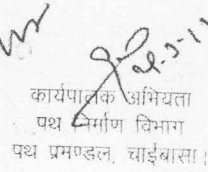 कार्यपालक अभियंता
पथ निर्माण विभाग
पथ प्रमण्डल, चाईबासा।